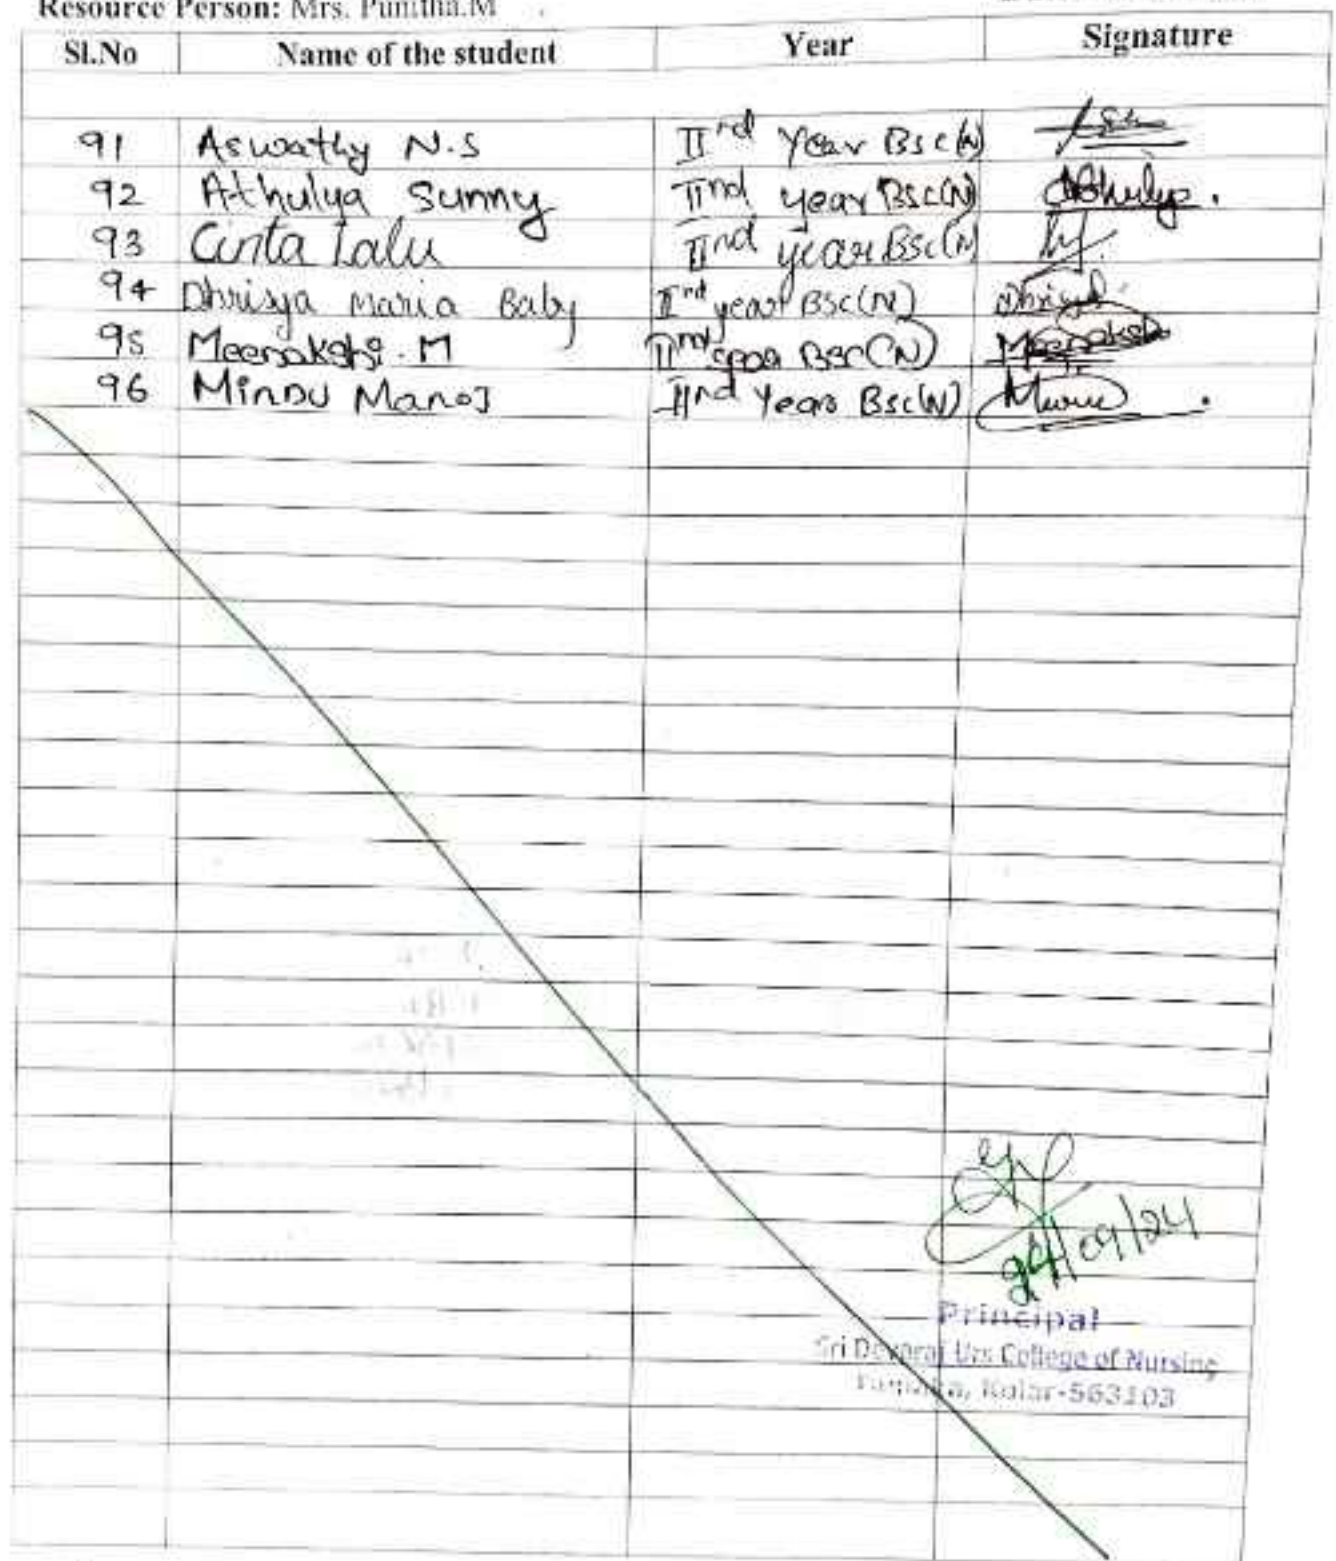 Resource Person: Mrs. Punitha.M
Sl.No Name of the student Year Signature
91 Aswathy N.S IIrd Year Bsc(N)
92 Athulya Sunny IInd year Bsc(N) Athulya.
93 Cinta Lalu IInd year Bsc(N)
94 Dhrisya Maria Baby IIrd year Bsc(N) Dhrisya
95 Meenakshi.M IInd year Bsc(N) Meenakshi
96 Minnu Manoj IInd Year Bsc(N)
24/09/24
Principal
Sri Devaraj Urs College of Nursing
Tamaka, Kolar-563103